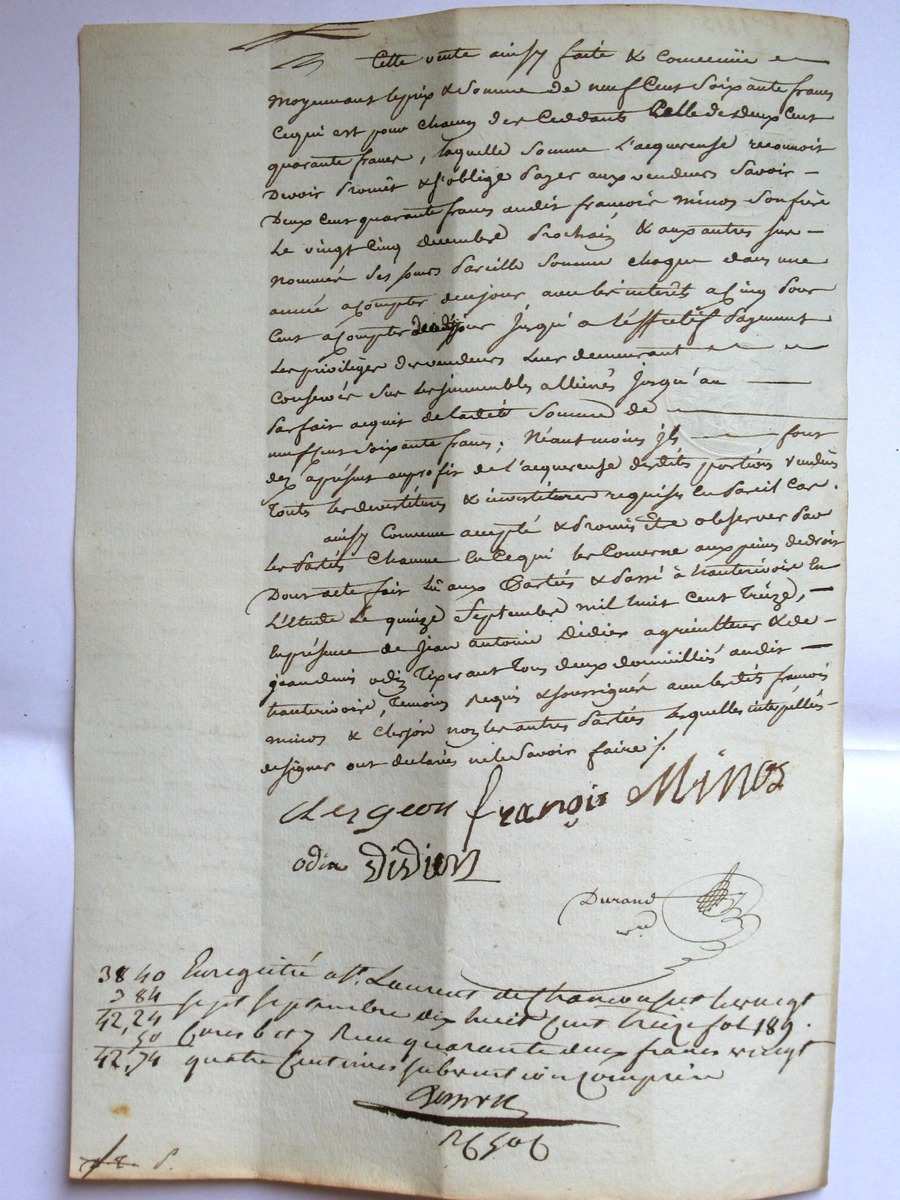 Cette vente ainsy faite & convenüe
moyennant le prix & Somme de neuf Cent Soixante francs
Cequi est pour chacun des Ceddants Celle de deux Cent
quarante francs, laquelle Somme L'acquereuse reconnoit
Devoir Promet & s'oblige Payer aux vendeurs Savoir
Deux Cent quarante francs audit françois minos Son frère
Le vingt Cinq decembre Prochain & aux autres sur
nommés Ses sœurs Pareille Somme chaque dans une
année a Compter de ce jour avec les interets a Cinq Pour
Cent a Compter de ce jour Jusqu'a l'éffectif Payement
Les privilèges des vendeurs Leur demeurant
Conservés Sur Les immeubles alliénés Jusqu'au
Parfait acquit de ladite Somme de
neuf Cent Soixante francs; Néantmoins ils font
dez aprésent au profit de l'acquereuse desdites portions vendues
Touts les devestitures & investitures requises En Pareil Cas.
ainsy Convenu accepté & Promis être observer Par
les Parties Chacune En Cequi les Concerne aux peines de droit
Dont acte fait Lü aux Parties & Passé à hauterivoire En
L'étude Le quinze Septembre mil huit Cent Treize,
En présence de Jean antoine Didier agriculteur & de
jean denis odin Tixerant Tous deux domicilliés audit
hauterivoire, Temoins Requis & soussignés avec lesdits françois
minos & Clerjon non les autres Parties Lesquelles interpellés
de signer ont declarés ne le Savoir faire /.
Clergeon françois MiNos
odin DiDier
Durand
nre
3840 Enregistré a St. Laurent de Chamousset le vingt
384 sept septembre dix huit Cent treize fol 189.
42,24 Cases 6 et 7 Recu quarante deux francs vingt
50 quatre Centimes subvention Comprise
42,74